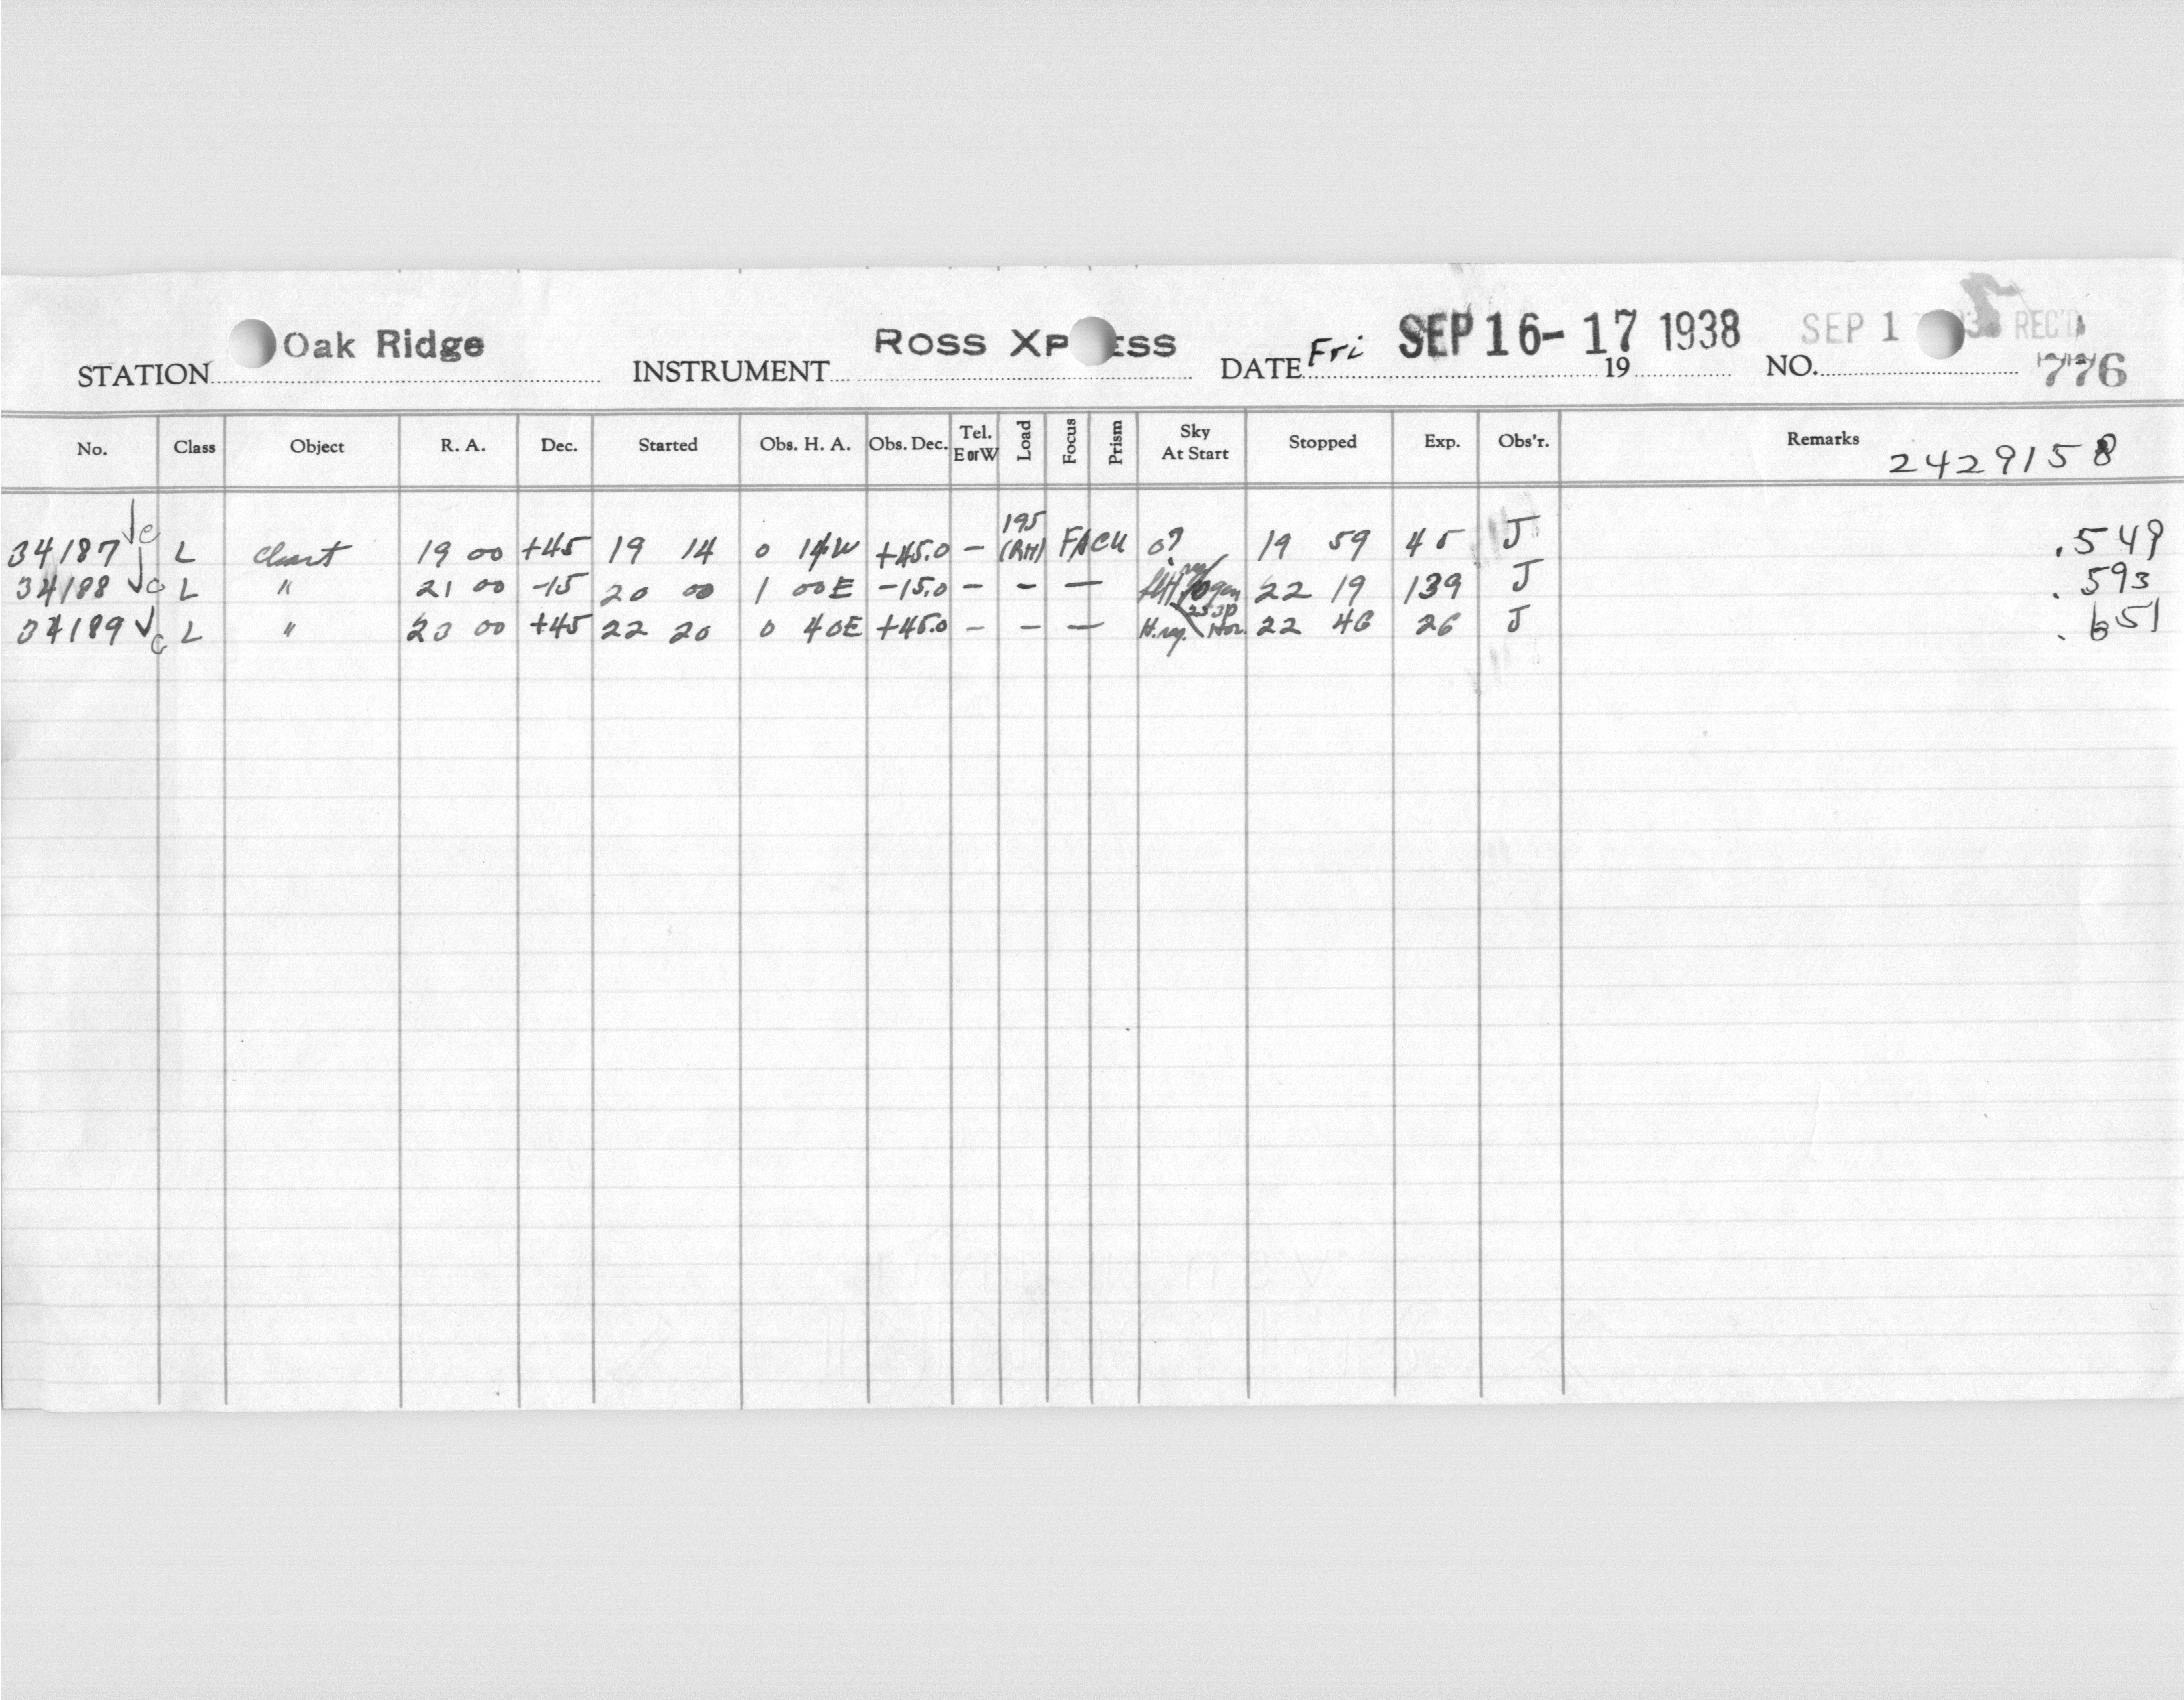 STATION Oak Ridge INSTRUMENT Ross Xp ess DATE Fri SEP 16-17 1938 19 NO. SEP 1 REC'D 776
No. Class Object R. A. Dec. Started Obs. H. A. Obs. Dec. Tel. E or W Load Focus Prism Sky At Start Stopped Exp. Obs'r. Remarks 2429158
34187 √c L Chart 19 00 +45 19 14 0 14W +45.0 - 195 (RH) FACU 0? 19 59 45 J .549
34188 √c L " 21 00 -15 20 00 1 00E -15.0 - - - 22 19 139 J .593
34189 √c L " 23 00 +45 22 20 0 40E +45.0 - - - 22 46 26 J .651